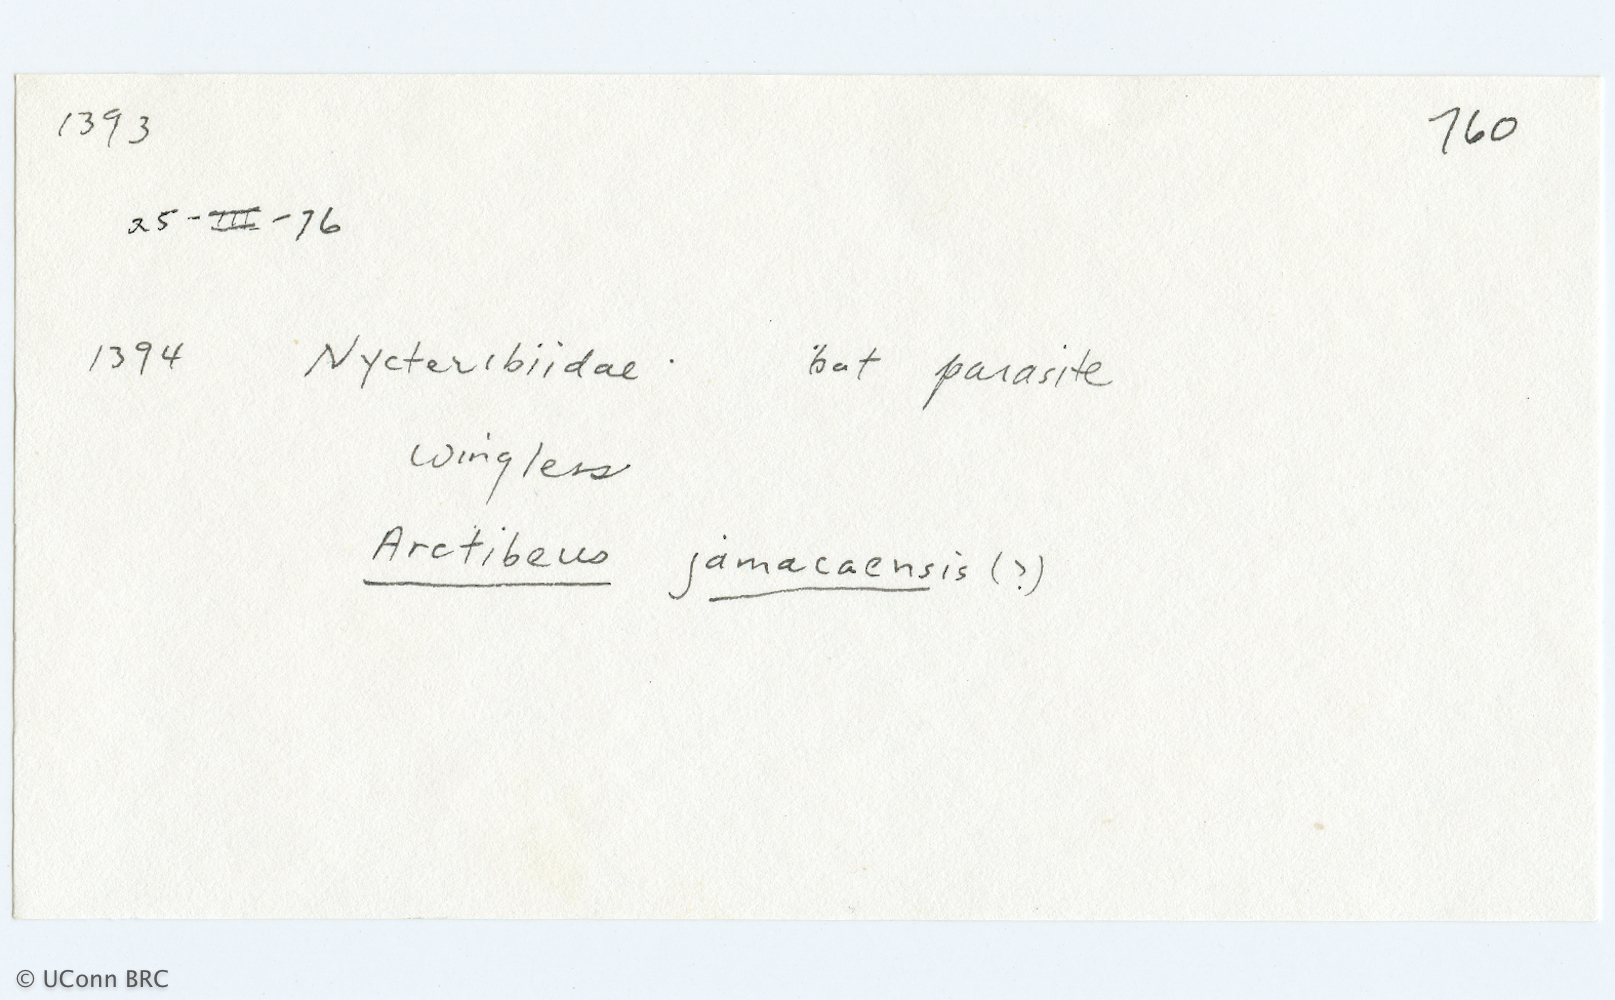 1393 760
25-III-76
1394 Nycteribiidae. bat parasite
wingless
Arctibeus jamacaensis (?)
© UConn BRC